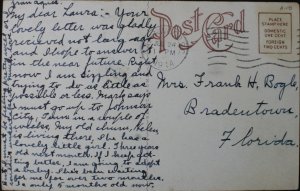 My dear Laura:- Your
lovely letter was gladly
received not long ago
and I hope to answer it
in the near future. Right
now I am sizzling and
trying to do as little as
possible or less. Perhaps
I must go up to Johnson
City, Tenn in a couple of
weeks. My old chum, Helen
lives there. She has a
lovely little girl. Three years
old next month. If I keep get-
ting better, I am going to get
a baby. She's been waiting
for me over two months,
is only 5 months old now.
Post Card
PLACE
STAMP HERE
DOMESTIC
ONE CENT
FOREIGN
TWO CENTS
Mrs. Frank H. Bogle,
Bradentown,
Florida